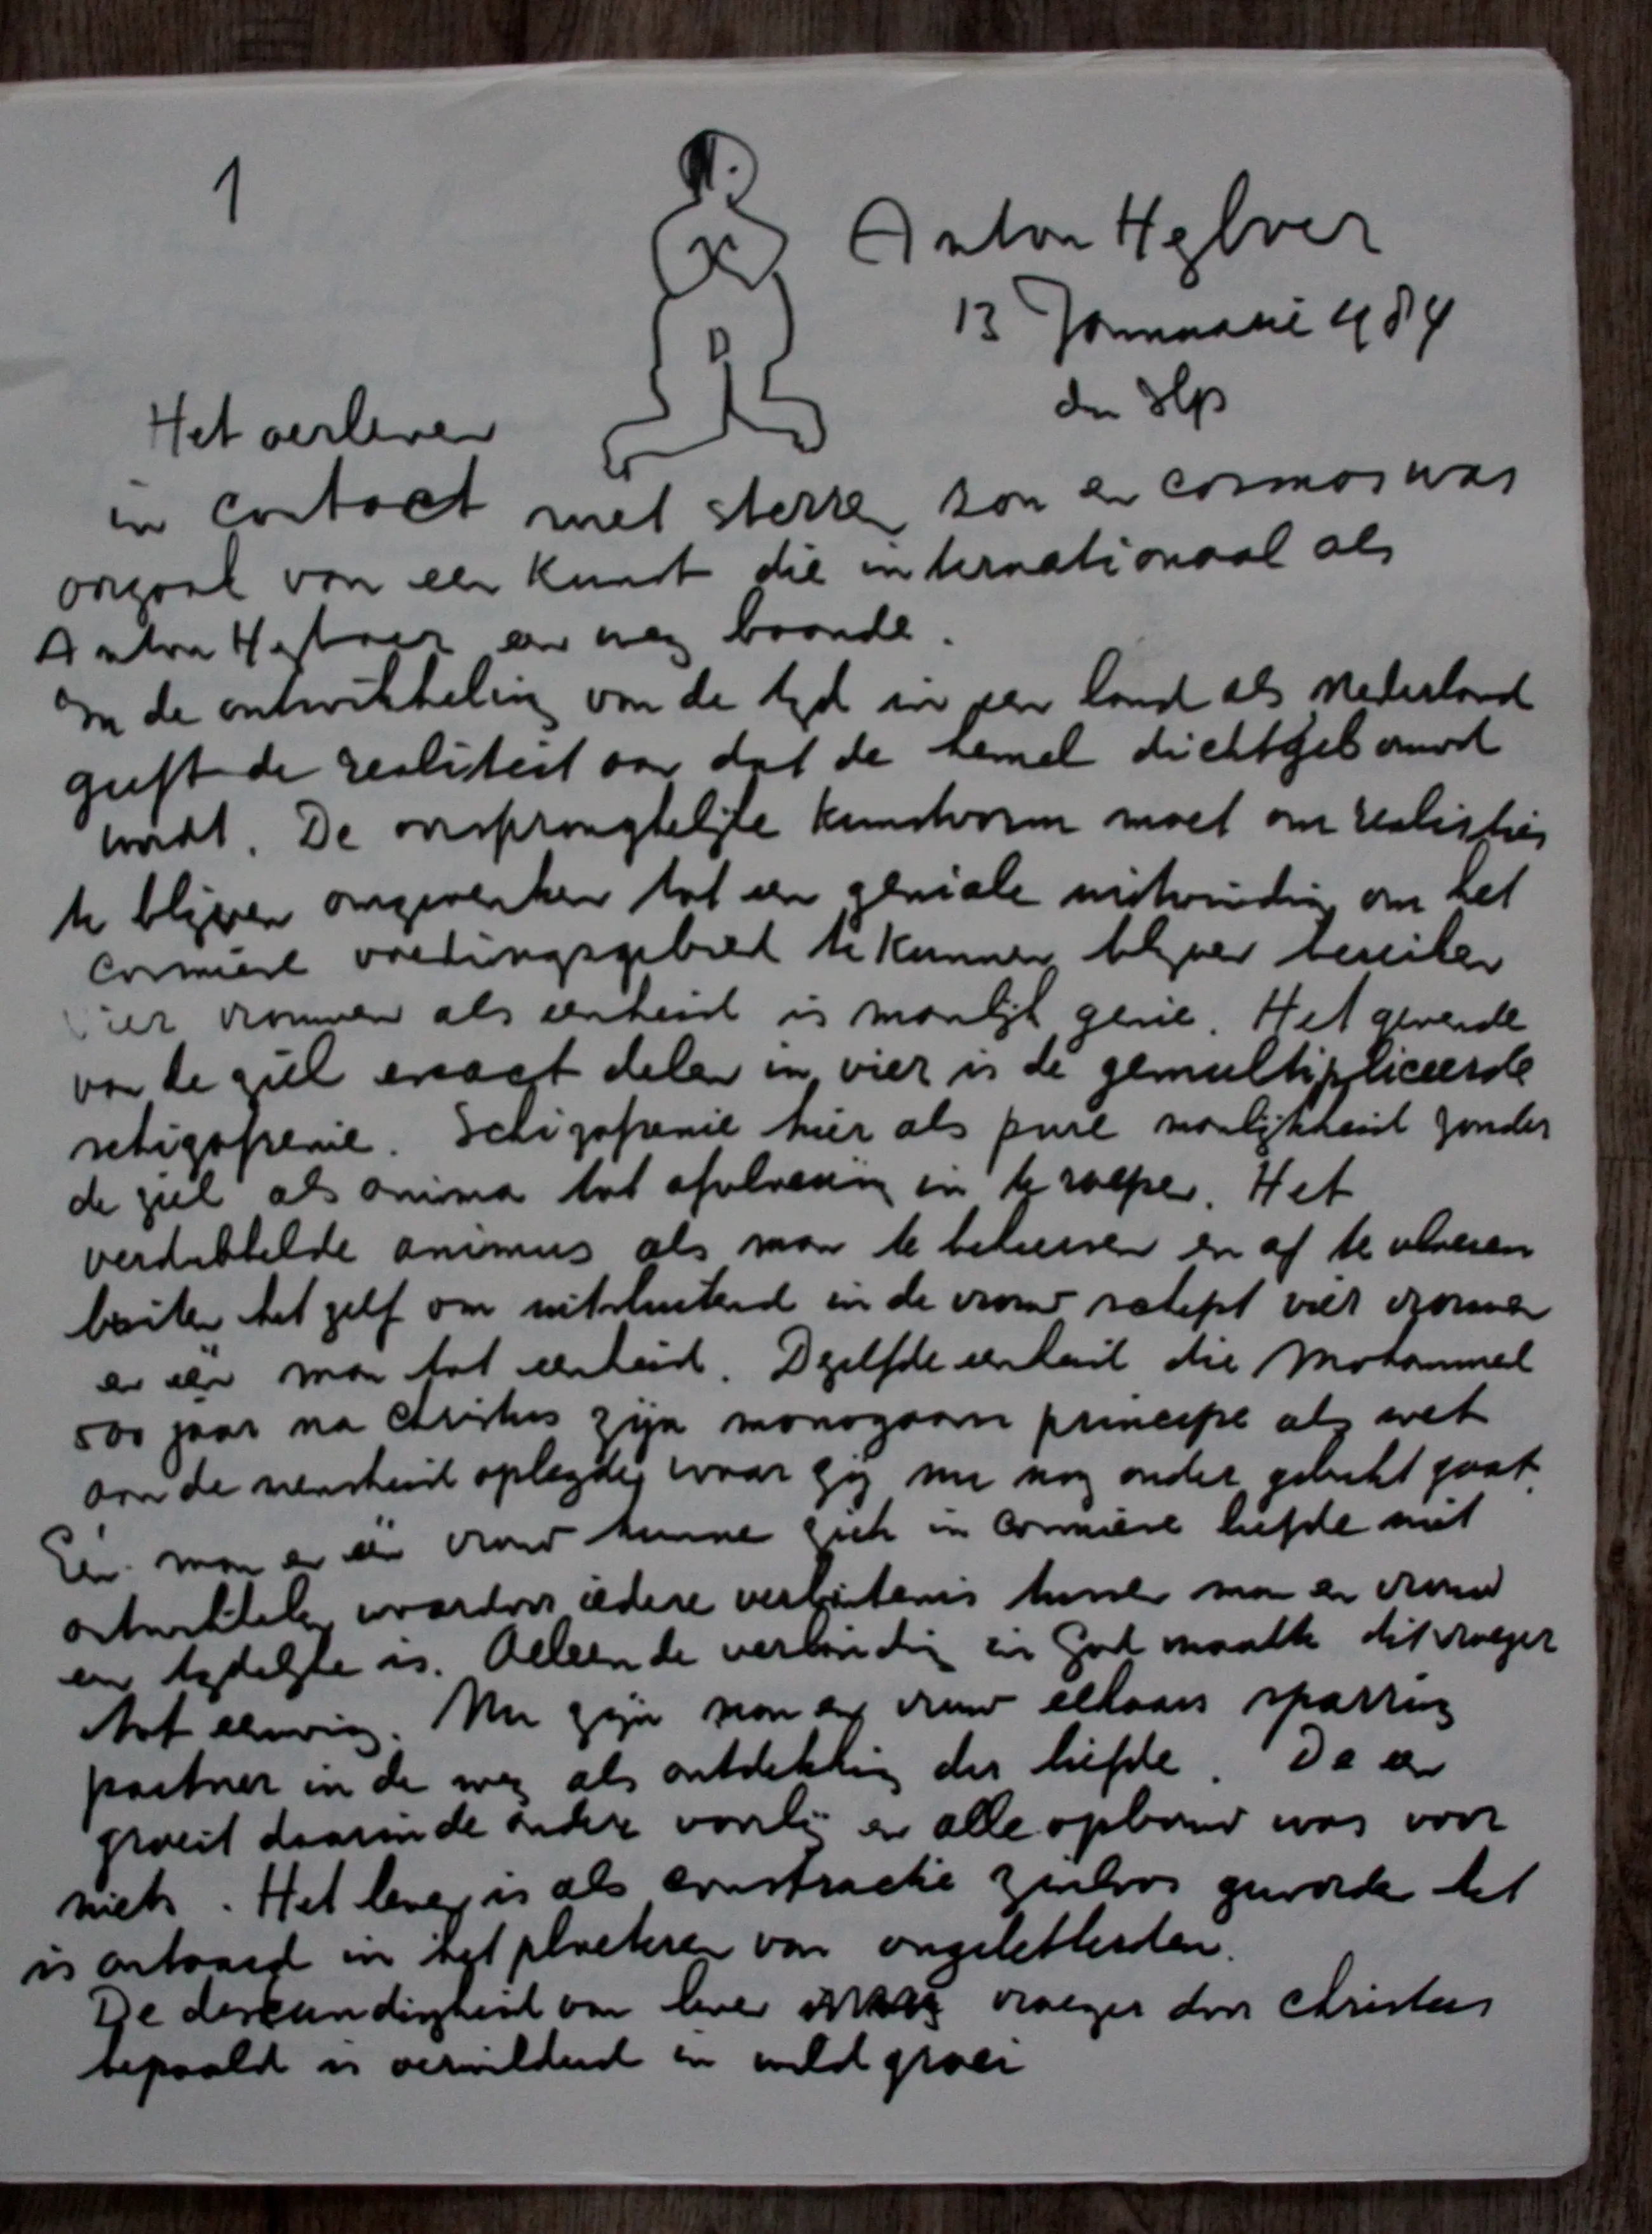 1
Anton Heyboer
13 Januari 1984
den Ilp
Het overleven
in contact met sterren zon en cosmos was
orgaal van een kunst die internationaal als
Anton Heyboer een weg baande.
In de ontwikkeling van de tyd in een land als Nederland
geeft de realiteit aan dat de hemel dichtgebouwd
wordt. De oorspronglelijke kunstvorm moet om realisties
te blijven omgewerken tot een geniale uitvinding om het
cosmiese voedingsgebied te kunnen blyven bereiken
vier vrouwen als eenheid is manlijk genie. Het gevende
van de ziel exact delen in vier is de gemultipliceerde
schizofrenie. Schizofrenie hier als pure manlijkheid zonder
de ziel als anima tot afvloeiing in te roepen. Het
verdubbelde animus als man te beheersen en af te vloeien
buiten het zelf om uitsluitend in de vrouw schept vier vrouwen
en één man tot eenheid. Dezelfde eenheid die Mohammed
500 jaar na Christus zijn monogaam principe als wet
aan de mensheid oplegde, waar zij nu nog onder gebukt gaat.
Één man en één vrouw kunnen zich in cosmiese liefde niet
ontwikkelen waardoor iedere verbintenis tussen man en vrouw
een tydelyke is. Alleen de verbinding in God maakte dit vroeger
tot eeuwig. Nu zijn man en vrouw elkaars sparring
partner in de weg als ontdekking der liefde. De een
groeit daarin de andere voorbij en alle opbouw was voor
niets. Het leven is als constructie zinloos geworden het
is ontaard in het ploeteren van ongeletterden.
De deskundigheid van leven vroeger door Christus
bepaald is verwilderd in wild groei